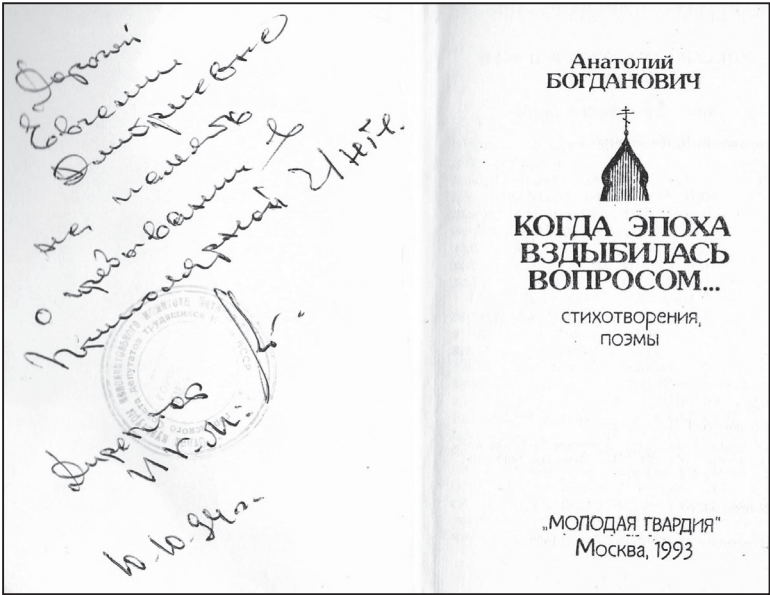 Дорогой
Евгении
Дмитриевне
на память
о пребывании в
Приполярной
Директор
10.10.94г.
Анатолий
БОГДАНОВИЧ
КОГДА ЭПОХА
ВЗДЫБИЛАСЬ
ВОПРОСОМ...
СТИХОТВОРЕНИЯ,
ПОЭМЫ
„МОЛОДАЯ ГВАРДИЯ"
Москва, 1993